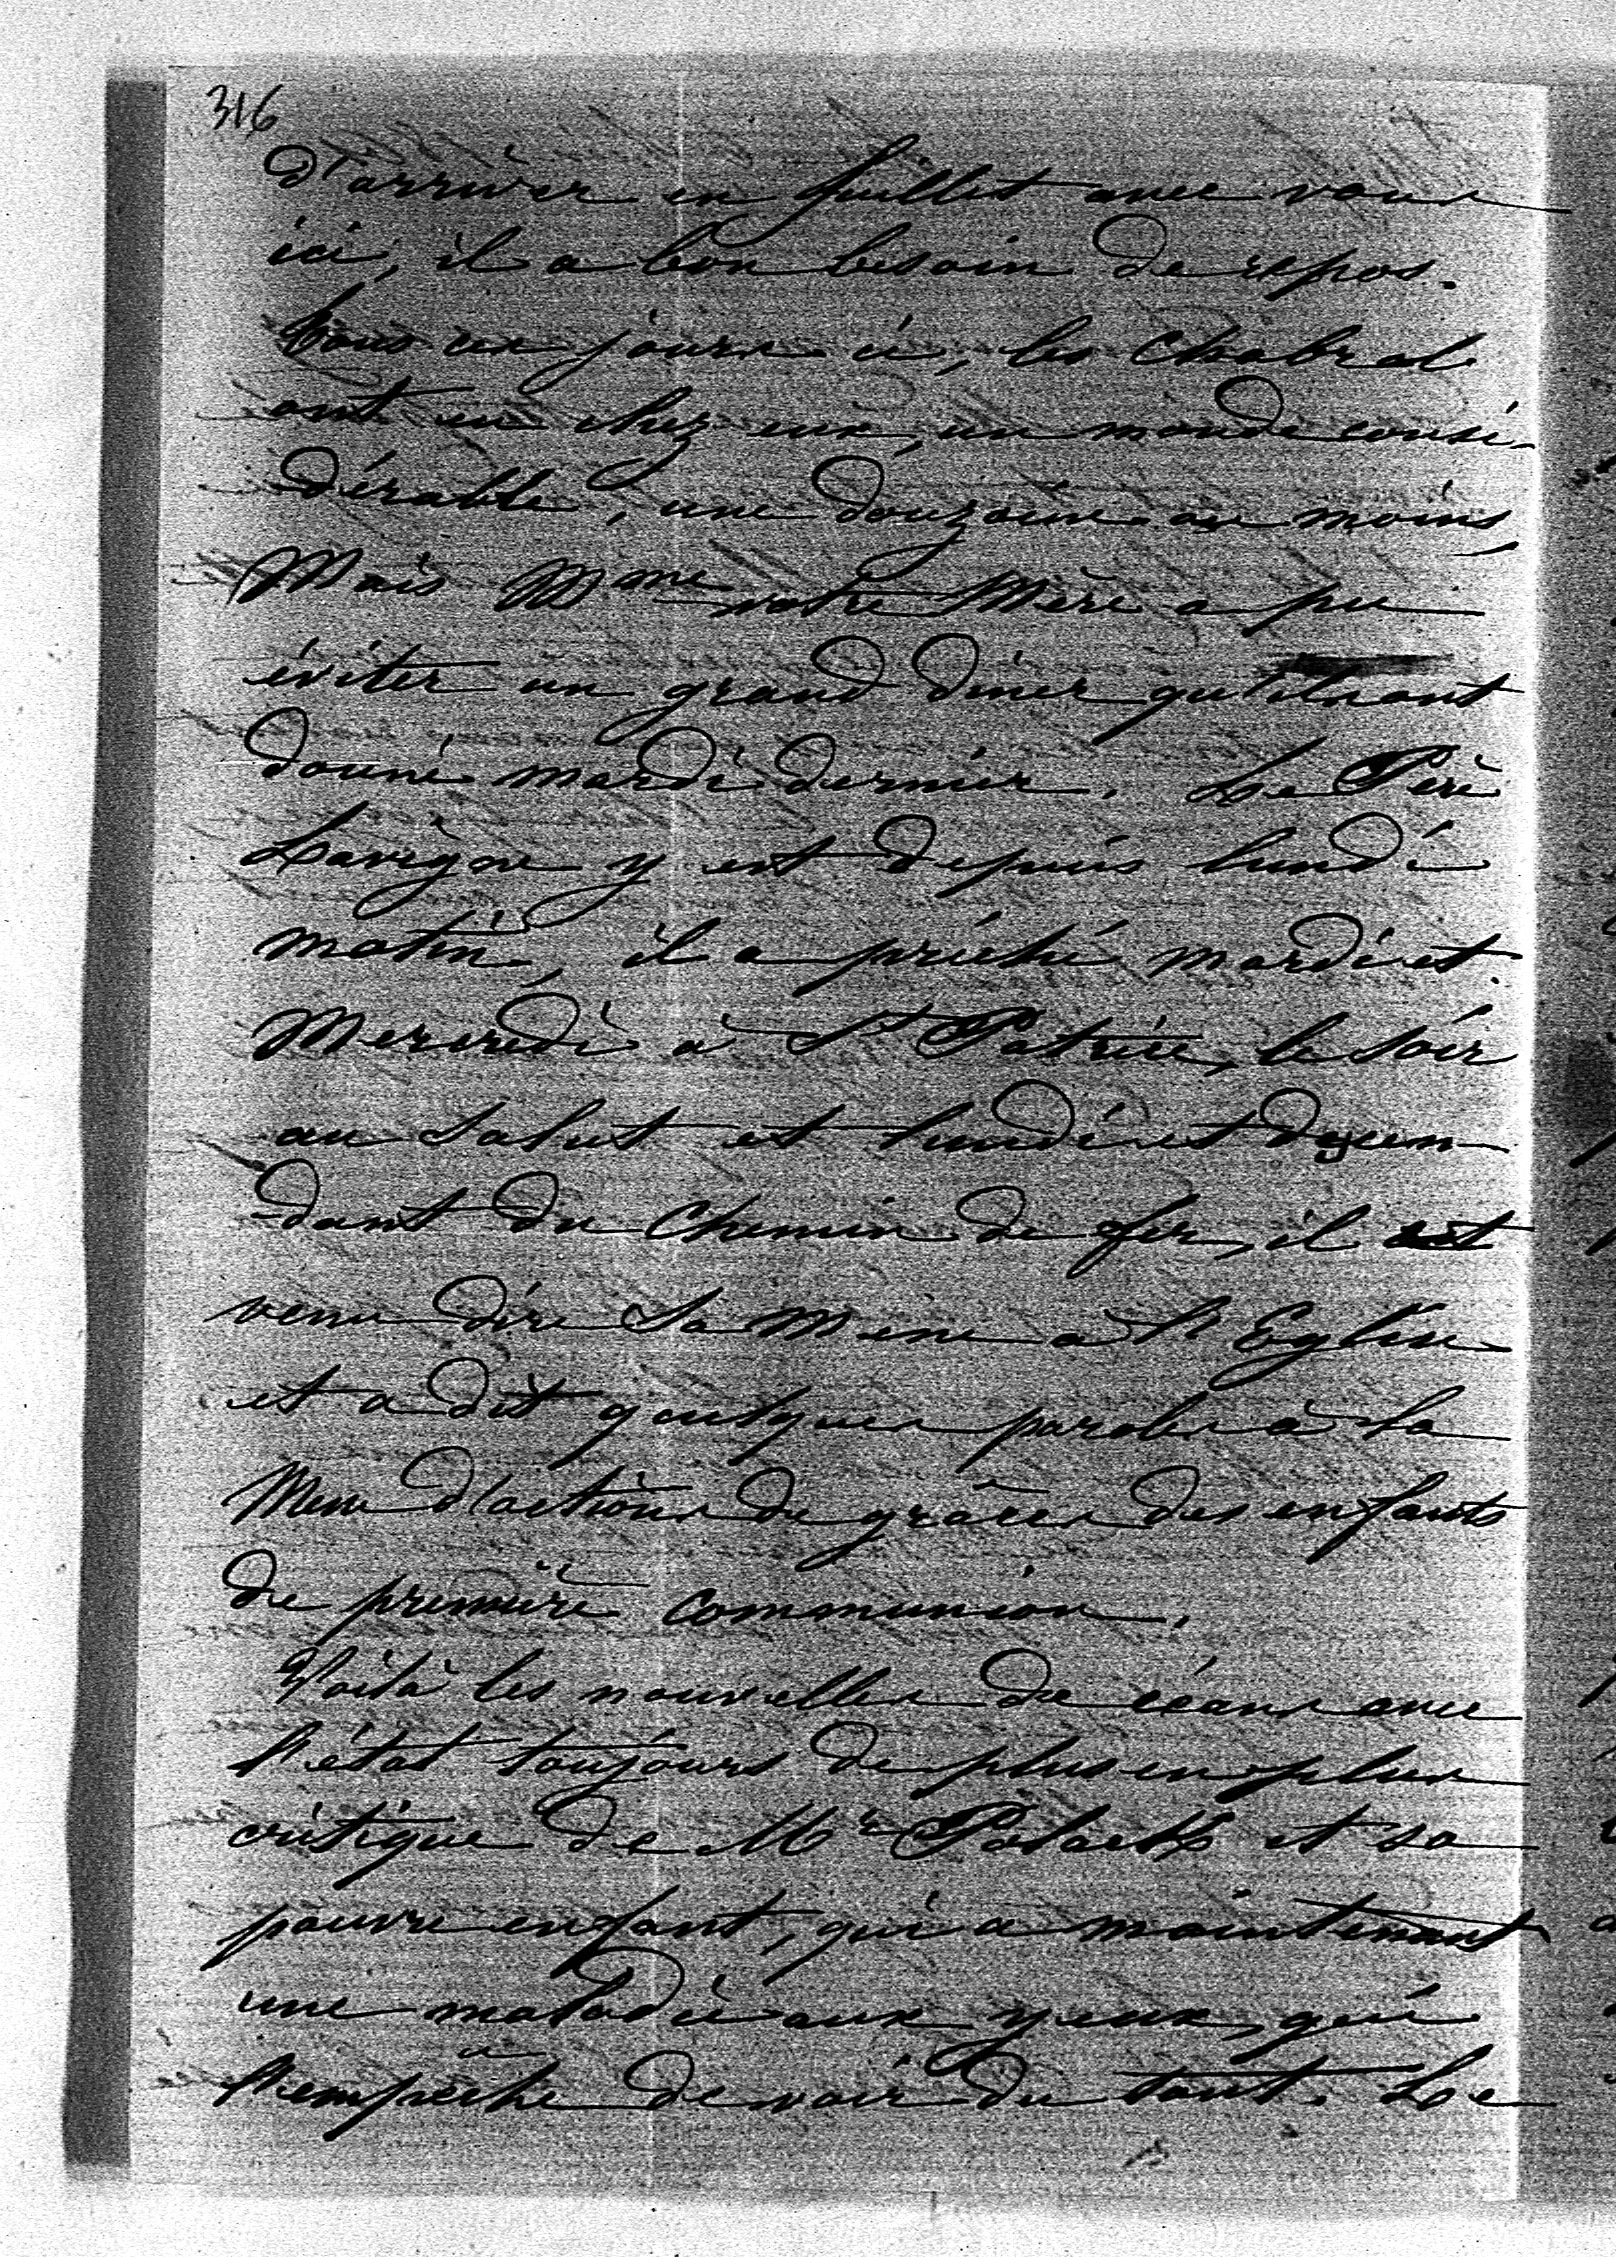 316
d'arriver en Juillet avec vous
ici, il a bon besoin de repos.
Tous ces jours ci, les Chabrol
ont eu chez eux, un monde consi-
dérable, une douzaine au moins
Mais Mme votre Mère a pu
éviter un grand diner qu'ils ont
donné mardi dernier. Le Père
Lavigne y est depuis lundi
matin, il a prêché mardi et
Mercredi à St Patrice, le soir
au Salut et lundi et descen-
dant du Chemin de fer, il est
venu dire Sa Messe à l'Eglise
et a dit quelques paroles à la
Messe d'actions de grâces des enfants
de première communion.
Voilà les nouvelles de céans avec
l'état toujours de plus en plus
critique de Mr et sa
pauvre enfant, qui a maintenant
une maladie aux yeux, qui
l'empêche de voir du tout. Le